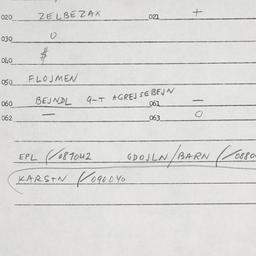 020 ZELBEZAX 021 +
030 0
040 $
050 FLOJMEN
060 BEJNDL G-T AGREJSEBEJN 061 —
062 — 063 0
EPL (/087042 GDOJLN/BARN (/0880
KARSTN (/090040